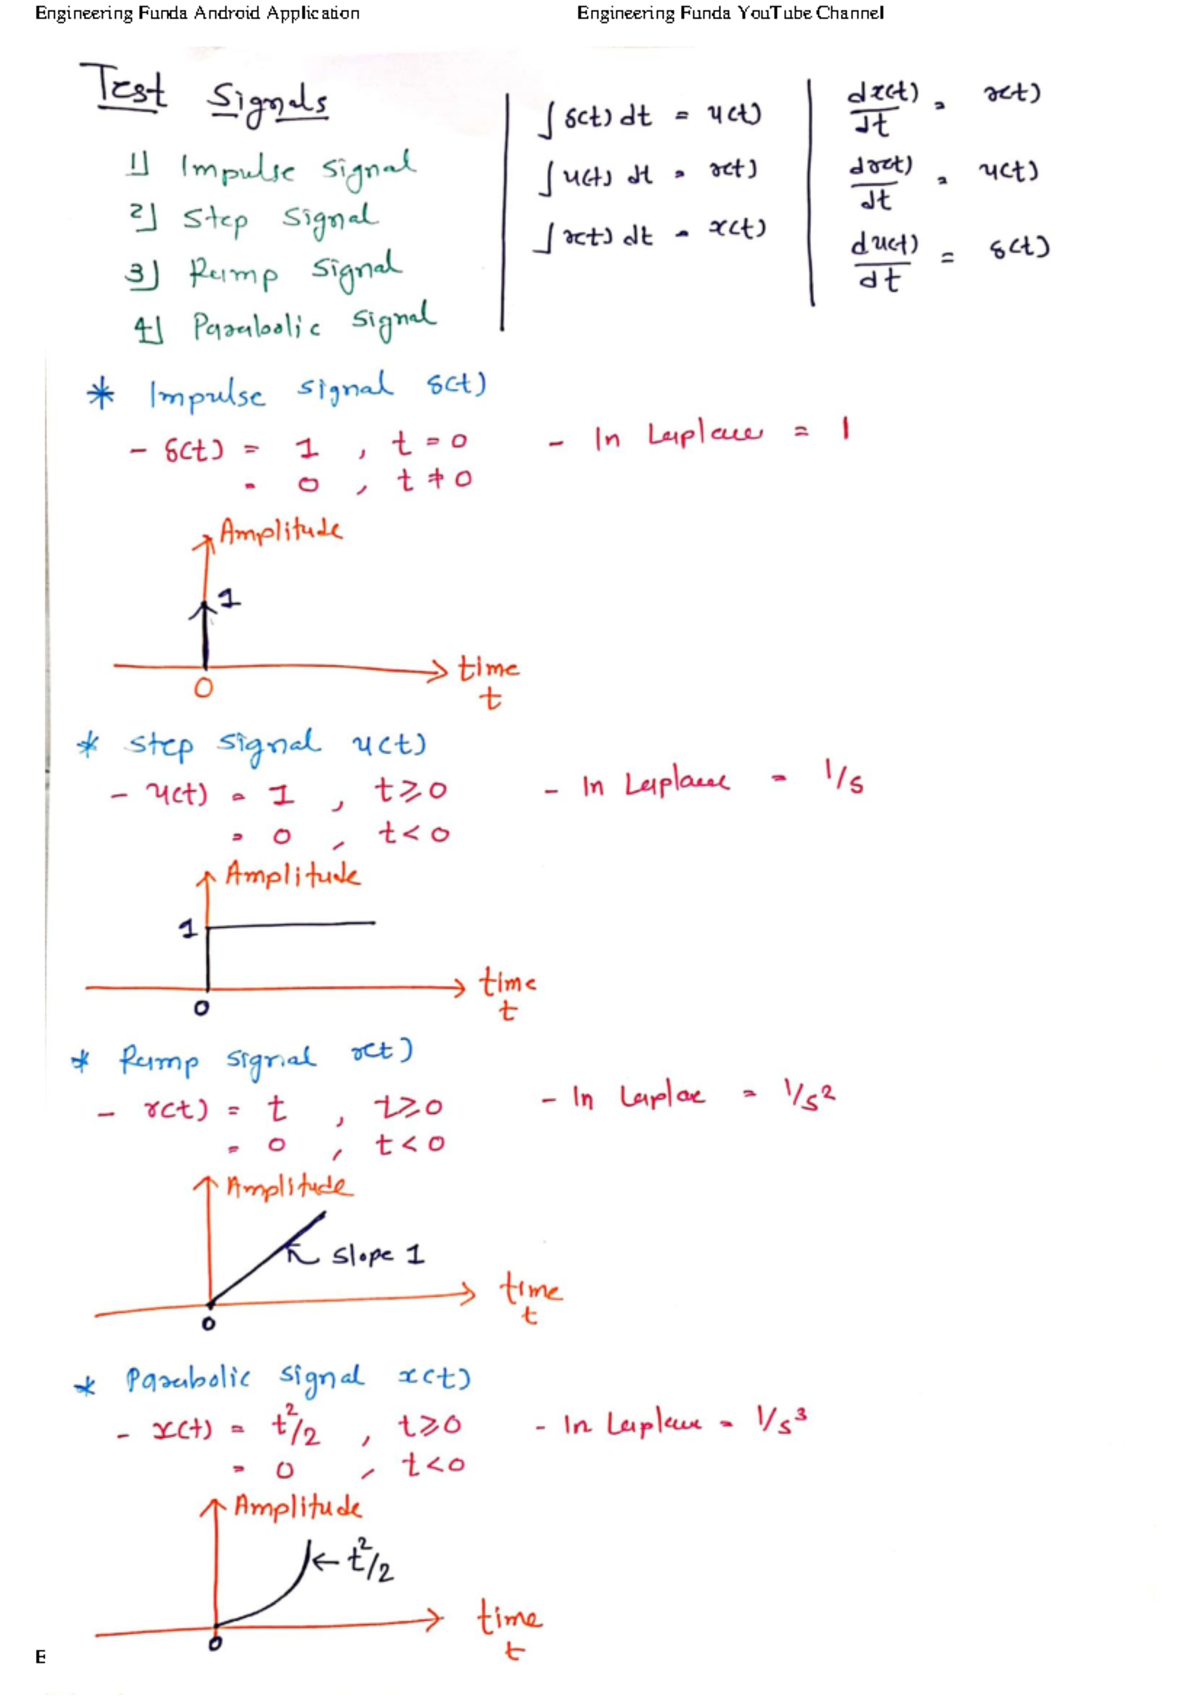 Engineering Funda Android Application
Engineering Funda YouTube Channel
Test Signals
1] Impulse signal
2] Step signal
3] Ramp signal
4] Parabolic signal
∫ δ(t) dt = u(t)
∫ u(t) dt = r(t)
∫ r(t) dt = x(t)
dx(t)/dt = r(t)
dr(t)/dt = u(t)
du(t)/dt = δ(t)
* Impulse signal δ(t)
- δ(t) = 1 , t = 0
= 0 , t ≠ 0
- In Laplace = 1
Amplitude
1
time
0
t
* Step signal u(t)
- u(t) = 1 , t ≥ 0
= 0 , t < 0
- In Laplace = 1/s
Amplitude
1
time
0
t
* Ramp signal r(t)
- r(t) = t , t ≥ 0
= 0 , t < 0
- In Laplace = 1/s²
Amplitude
slope 1
time
0
t
* Parabolic signal x(t)
- x(t) = t²/2 , t ≥ 0
= 0 , t < 0
- In Laplace = 1/s³
Amplitude
t²/2
time
0
t
E